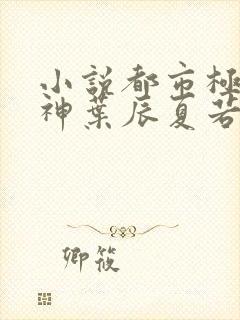 小説都市極
神葉辰夏若
卿筱